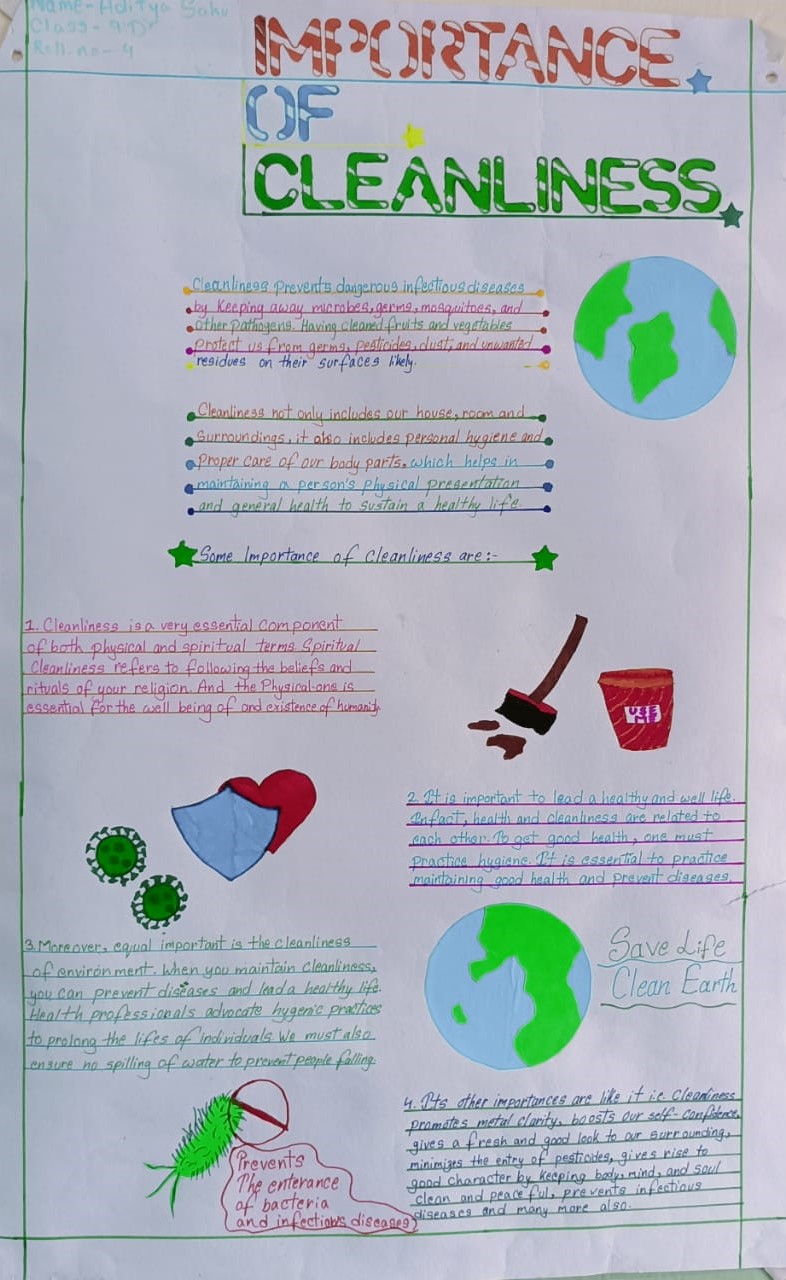 Name-Aditya Sahu
Class-9'D'
Roll.no-4
IMPORTANCE
OF
CLEANLINESS
Cleanliness prevents dangerous infectious diseases
by Keeping away microbes, germs, mosquitoes, and
other pathogens. Having cleaned fruits and vegetables
protect us from germs, pesticides, dust, and unwanted
residues on their surfaces likely.
Cleanliness not only includes our house, room and
Surroundings, it also includes personal hygiene and
Proper care of our body parts, which helps in
maintaining a person's physical presentation
and general health to sustain a healthy life.
Some Importance of Cleanliness are:-
1. Cleanliness is a very essential Component
of both physical and spiritual terms. Spiritual
Cleanliness refers to following the beliefs and
rituals of your religion. And the Physical one is
essential for the well being of and existence of humanity.
USE
ME
2. It is important to lead a healthy and well life.
Infact, health and cleanliness are related to
each other. To get good health, one must
Practice hygiene. It is essential to practice
maintaining good health and prevent diseases.
3. Moreover, equal important is the cleanliness
of environment. When you maintain Cleanliness,
you can prevent diseases and lead a healthy life.
Health professionals advocate hygenic practices
to prolong the lifes of individuals. We must also
ensure no spilling of water to prevent people falling.
Save Life
Clean Earth
4. Its other importances are like it i.e. Cleanliness
promotes metal clarity, boosts our self-confidence,
gives a fresh and good look to our surrounding,
minimizes the entry of pesticides, gives rise to
good character by keeping body, mind, and soul
clean and peaceful, prevents infectious
diseases and many more also.
Prevents
The enterance
of bacteria
and infectious diseases